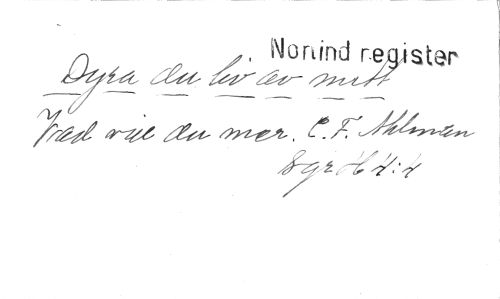 Norlind register
Dyra du liv av mitt
Vad vill du mer. C. F. Ahlman
Sgr H 4:4